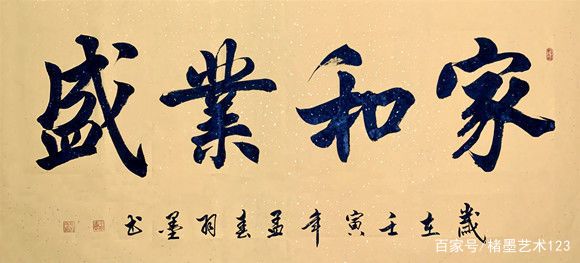 家和業盛
歲在壬寅年孟春羽墨书
百家号/楮墨艺术123